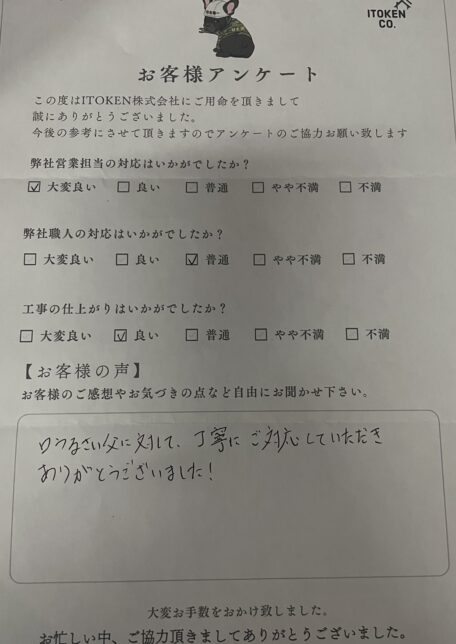 ITOKEN
CO.
お客様アンケート
この度はITOKEN株式会社にご用命を頂きまして
誠にありがとうございました。
今後の参考にさせて頂きますのでアンケートのご協力お願い致します
弊社営業担当の対応はいかがでしたか?
☑ 大変良い ☐ 良い ☐ 普通 ☐ やや不満 ☐ 不満
弊社職人の対応はいかがでしたか?
☐ 大変良い ☐ 良い ☑ 普通 ☐ やや不満 ☐ 不満
工事の仕上がりはいかがでしたか?
☐ 大変良い ☑ 良い ☐ 普通 ☐ やや不満 ☐ 不満
【お客様の声】
お客様のご感想やお気づきの点など自由にお聞かせ下さい。
口うるさい父に対して、丁寧にご対応していただき
ありがとうございました!
大変お手数をおかけ致しました。
お忙しい中、ご協力頂きましてありがとうございました。